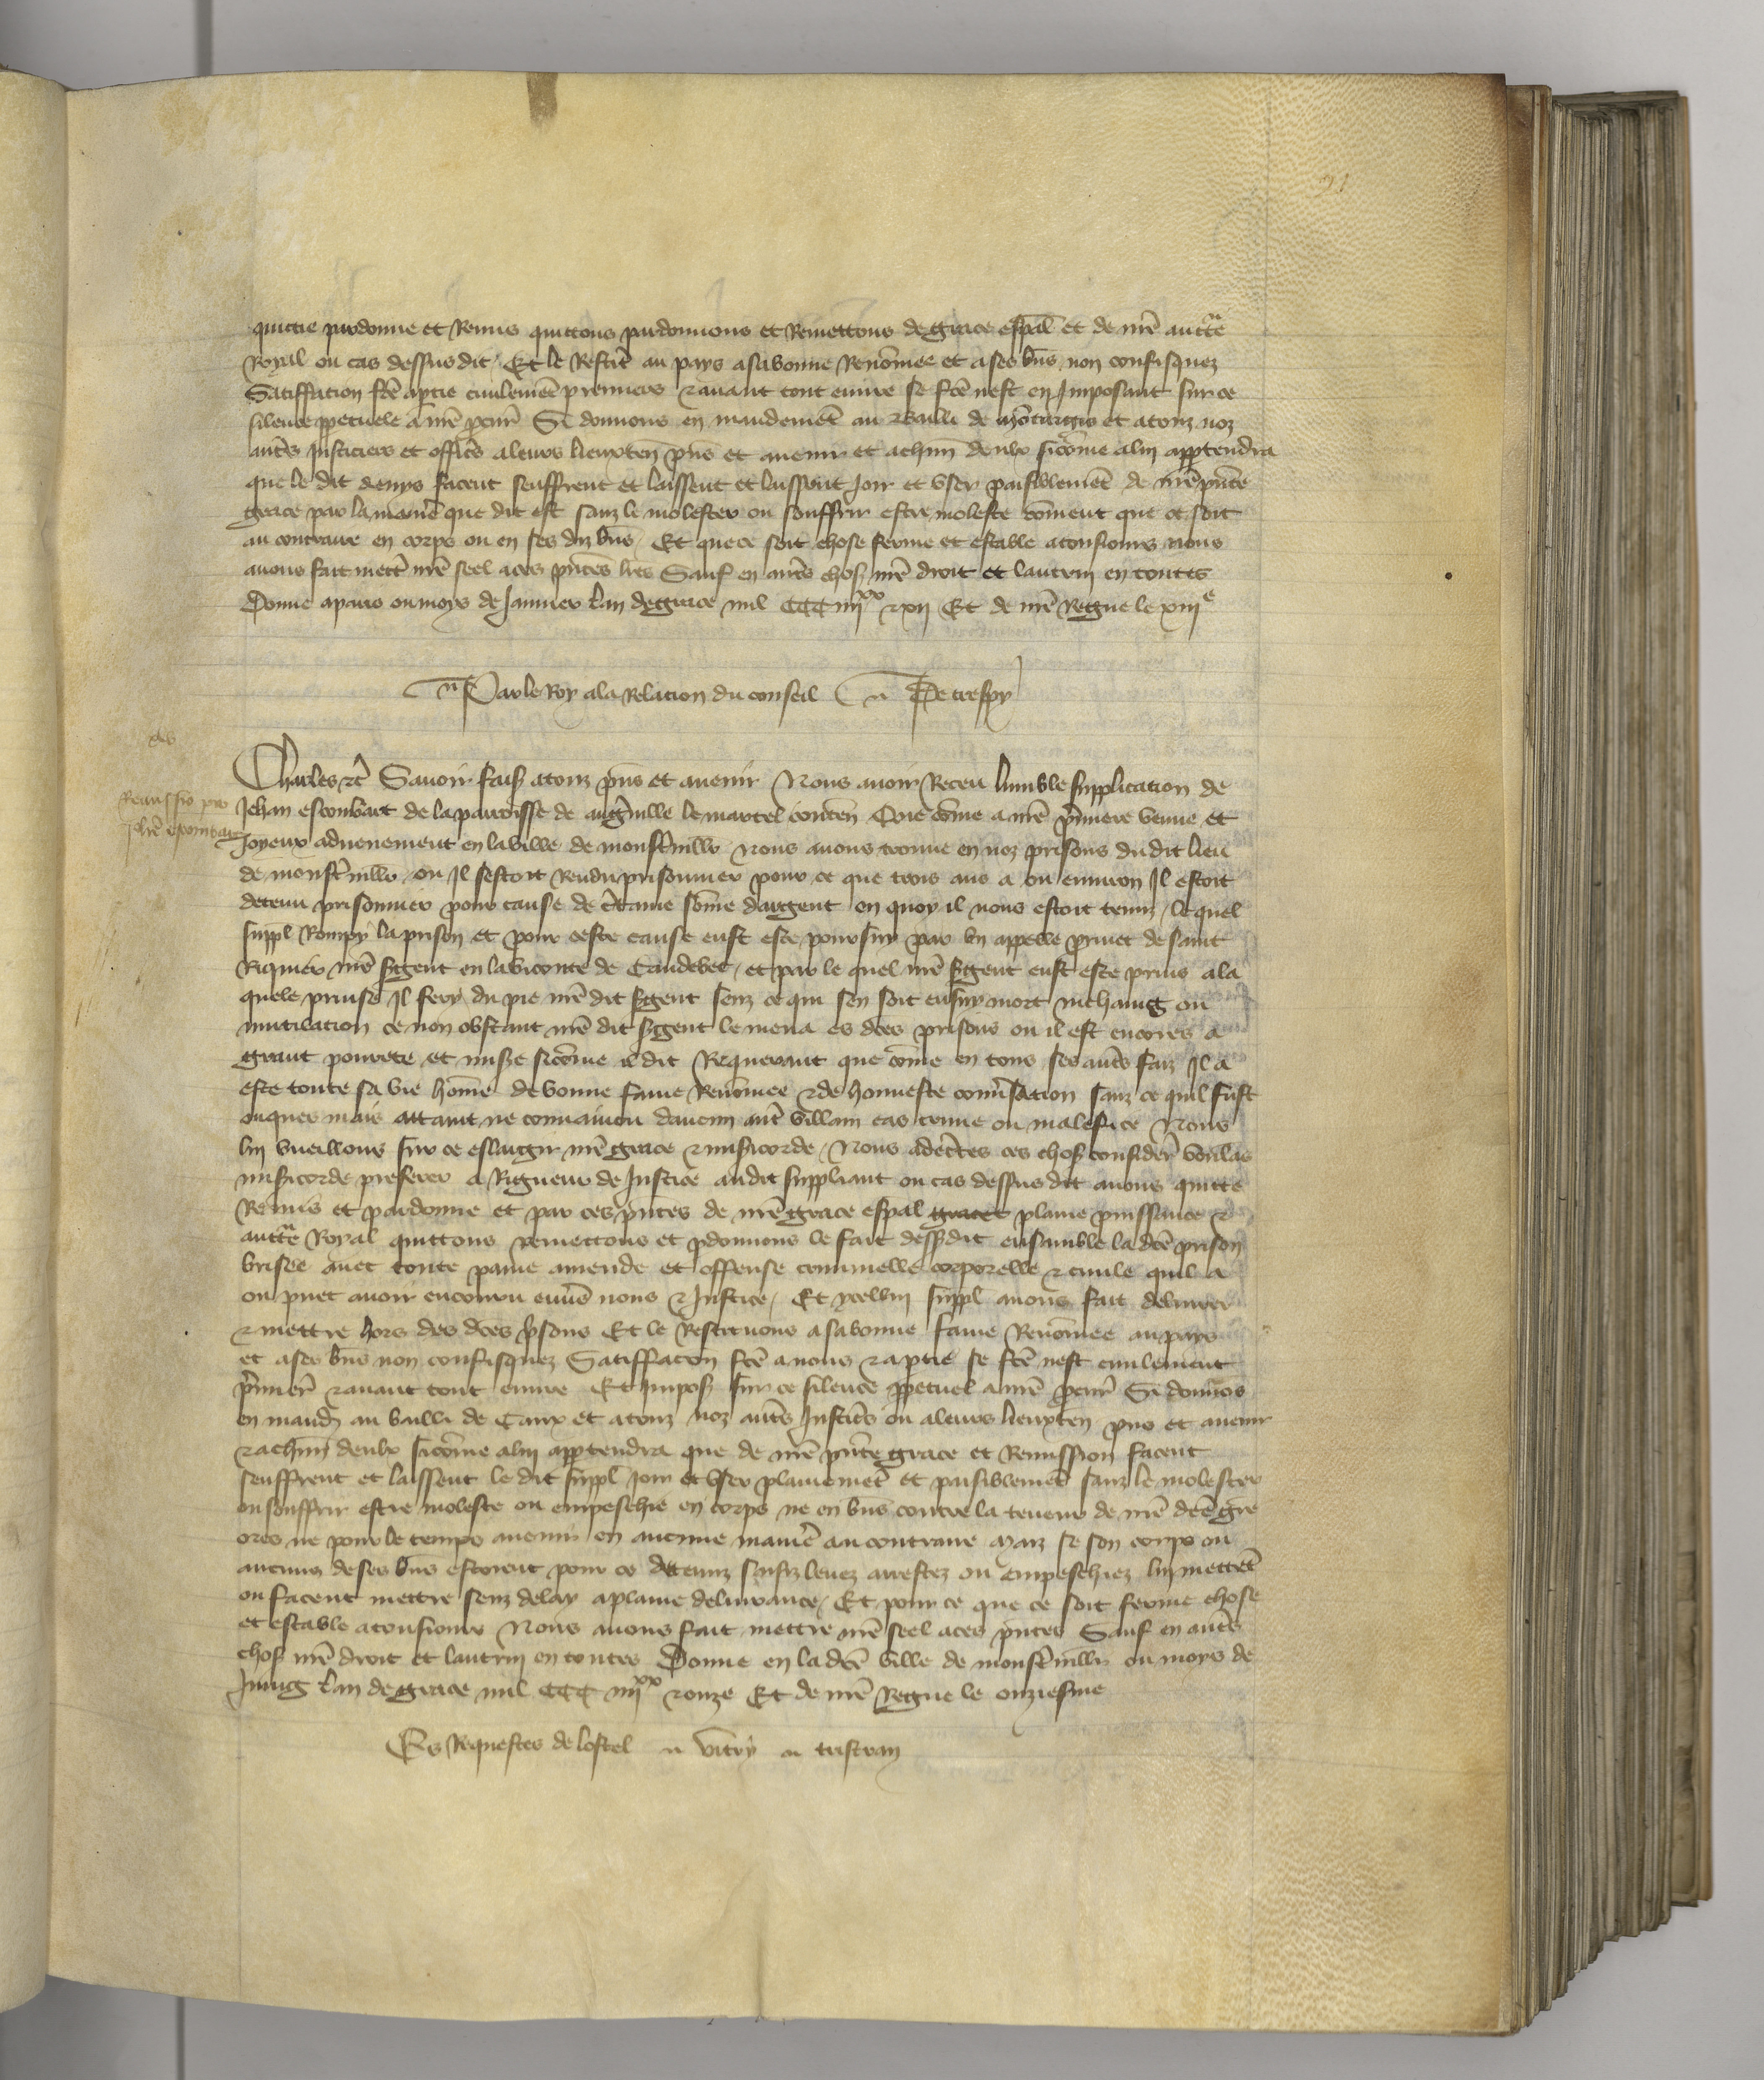 91
quictie pardonne et Remis quictons pardonnons et Remettons de grace espāl et de nrē auctē
Royal ou cas dessus dit Et le Restit̄ au pays a sa bonne Renōmee et a ses bn̄s non confisquez
Satiffation fcē a ptie ciuilemēt premiers & auant tout euure se fcē nest en Imposant sur ce
silence ppetuele a nrē pcur̄ Si donnons en mandemēt au Bailli de Mōtargis et a touz noz
aut̄s Justiciers et offic̄s a leurs lieuxten̄ pn̄s et auenir et a chūn deulx sicōme a luy apptendra
que le dit denys facent seuffrent et laissent et laissent Joir et vser paisiblemēt de nrē pn̄te
grace par la manie᷑ que dit est sanz le molester ou souffrir estre moleste cōment que ce soit
au contraire en corps ou en ses diz bn̄s Et que ce soit chose ferme et estable a tousiours nous
auons fait mett̄ nrē seel a ces pn̄tes lrēs Sauf en aut̄s chos nrē droit et lautruy en toutes
Donne a paris ou moys de Januier lan de grace mil CCC iiijxx & xij Et de nrē Regne le xiije
Par le Roy a la Relation du conseil n De crespy
Charles &c̄ Sauoir fais̄ a touz pn̄s et auenir Nous auoir Receu lumble supplication de
Remissio pro
Jehan escombart de la parroisse de angūille le martel conten̄ Que cōme a nrē p̄miere venue et
Johē escombart
Joyeux aduenement en la ville de monst̄uillr Nous auons trouue en noz prisons du dit lieu
de monst̄uillr ou Il sestoit Rendu prisonnier pour ce que trois ans a ou enuiron Il estoit
detenu prisonnier pour cause de c̄taine sōme dargent en quoy il nous estoit tenuz le quel
suppl Rompy la prison et pour ceste cause eust este poursuy par vn appelle p̄uuet de saint
Riquier nrē s̄gent en la viconte de Caudebec et par le quel nrē s̄gent eust este prins a la
quele prinse Il fery du pie nrē dit s̄gent senz ce qui sen soit ensuy mort mehaing ou
mutilation ce non obstant nrē dit s̄gent le mena es dc̄es prisons ou il est encores a
grant pourete et mise᷑ sicōme il dit Requerant que cōme en tous ses aut̄s faiz Il a
este toute sa vie hōme de bonne fame Renōmee & de honneste conu᷑sation sanz ce quil fust
onques mais attaint ne conuaincu daucun aut̄ villain cas crime ou malefice Nous
luy vueillons sur ce eslargir nrē grace & mis̄icorde Nous adec̄tes ces chos consider̄ voulās
mis̄icorde preferer a Rigueur de Justice au dit suppliant ou cas dessus dit auons quitte
Remis et pardonne et par ces pn̄tes de nrē grace espal grace plaine puissance &
auctē Royal quittons remettons et pdonnons le fait dess᷑dit ensamble la dcē prison
brisee auec toute paine amende et offense criminelle corporelle & ciuile quil a
ou puet auoir encouru enu᷑s nous & Justice Et ycellui suppl auons fait deliurer
& mettre hors des dc̄es p̄sons Et le Restituons a sa bonne fame Renōmee au pays
et a ses bn̄s non confisquez Satiffacōn fcē a nous & a ptie se fcē nest ciuilement
p̄mier᷑ & auant tout euure Et Impos̄ sur ce silence ppetuel a nrē pcur̄ Si donnōs
en mand᷑ au bailli de Caux et a touz noz aut̄s Justic̄s ou a leurs lieuxten pn̄s et auenir
& a chūn deulx sicōme a luy apptendra que de nrē pn̄te grace et Remission facent
seuffrent et laissent le dit suppl Joir et vser plainemēt et paisiblemēt sanz le molester
ou souffrir estre moleste ou empeschie en corps ne en bn̄s contre la teneur de nrē dcē grē
ores ne pour le temps auenir en aucune manie᷑ au contraire Maiz se son corps ou
aucuns de ses bn̄s estoient pour ce detenuz saisiz leuez arrestez ou empeschiez luy mettēt
ou facent mettre senz delay a plaine deliurance Et pour ce que ce soit ferme chose
et estable a tousiours Nous auons fait mettre nrē seel a ces pn̄tes Sauf en aut̄s
chos nrē droit et lautruy en toutes Donne en la dcē ville de monst̄uillr ou moys de
Juing lan de grace mil CCC iiijxx & onze Et de nrē Regne le onziesme
Es Requestes de lostel n vitry n tristran